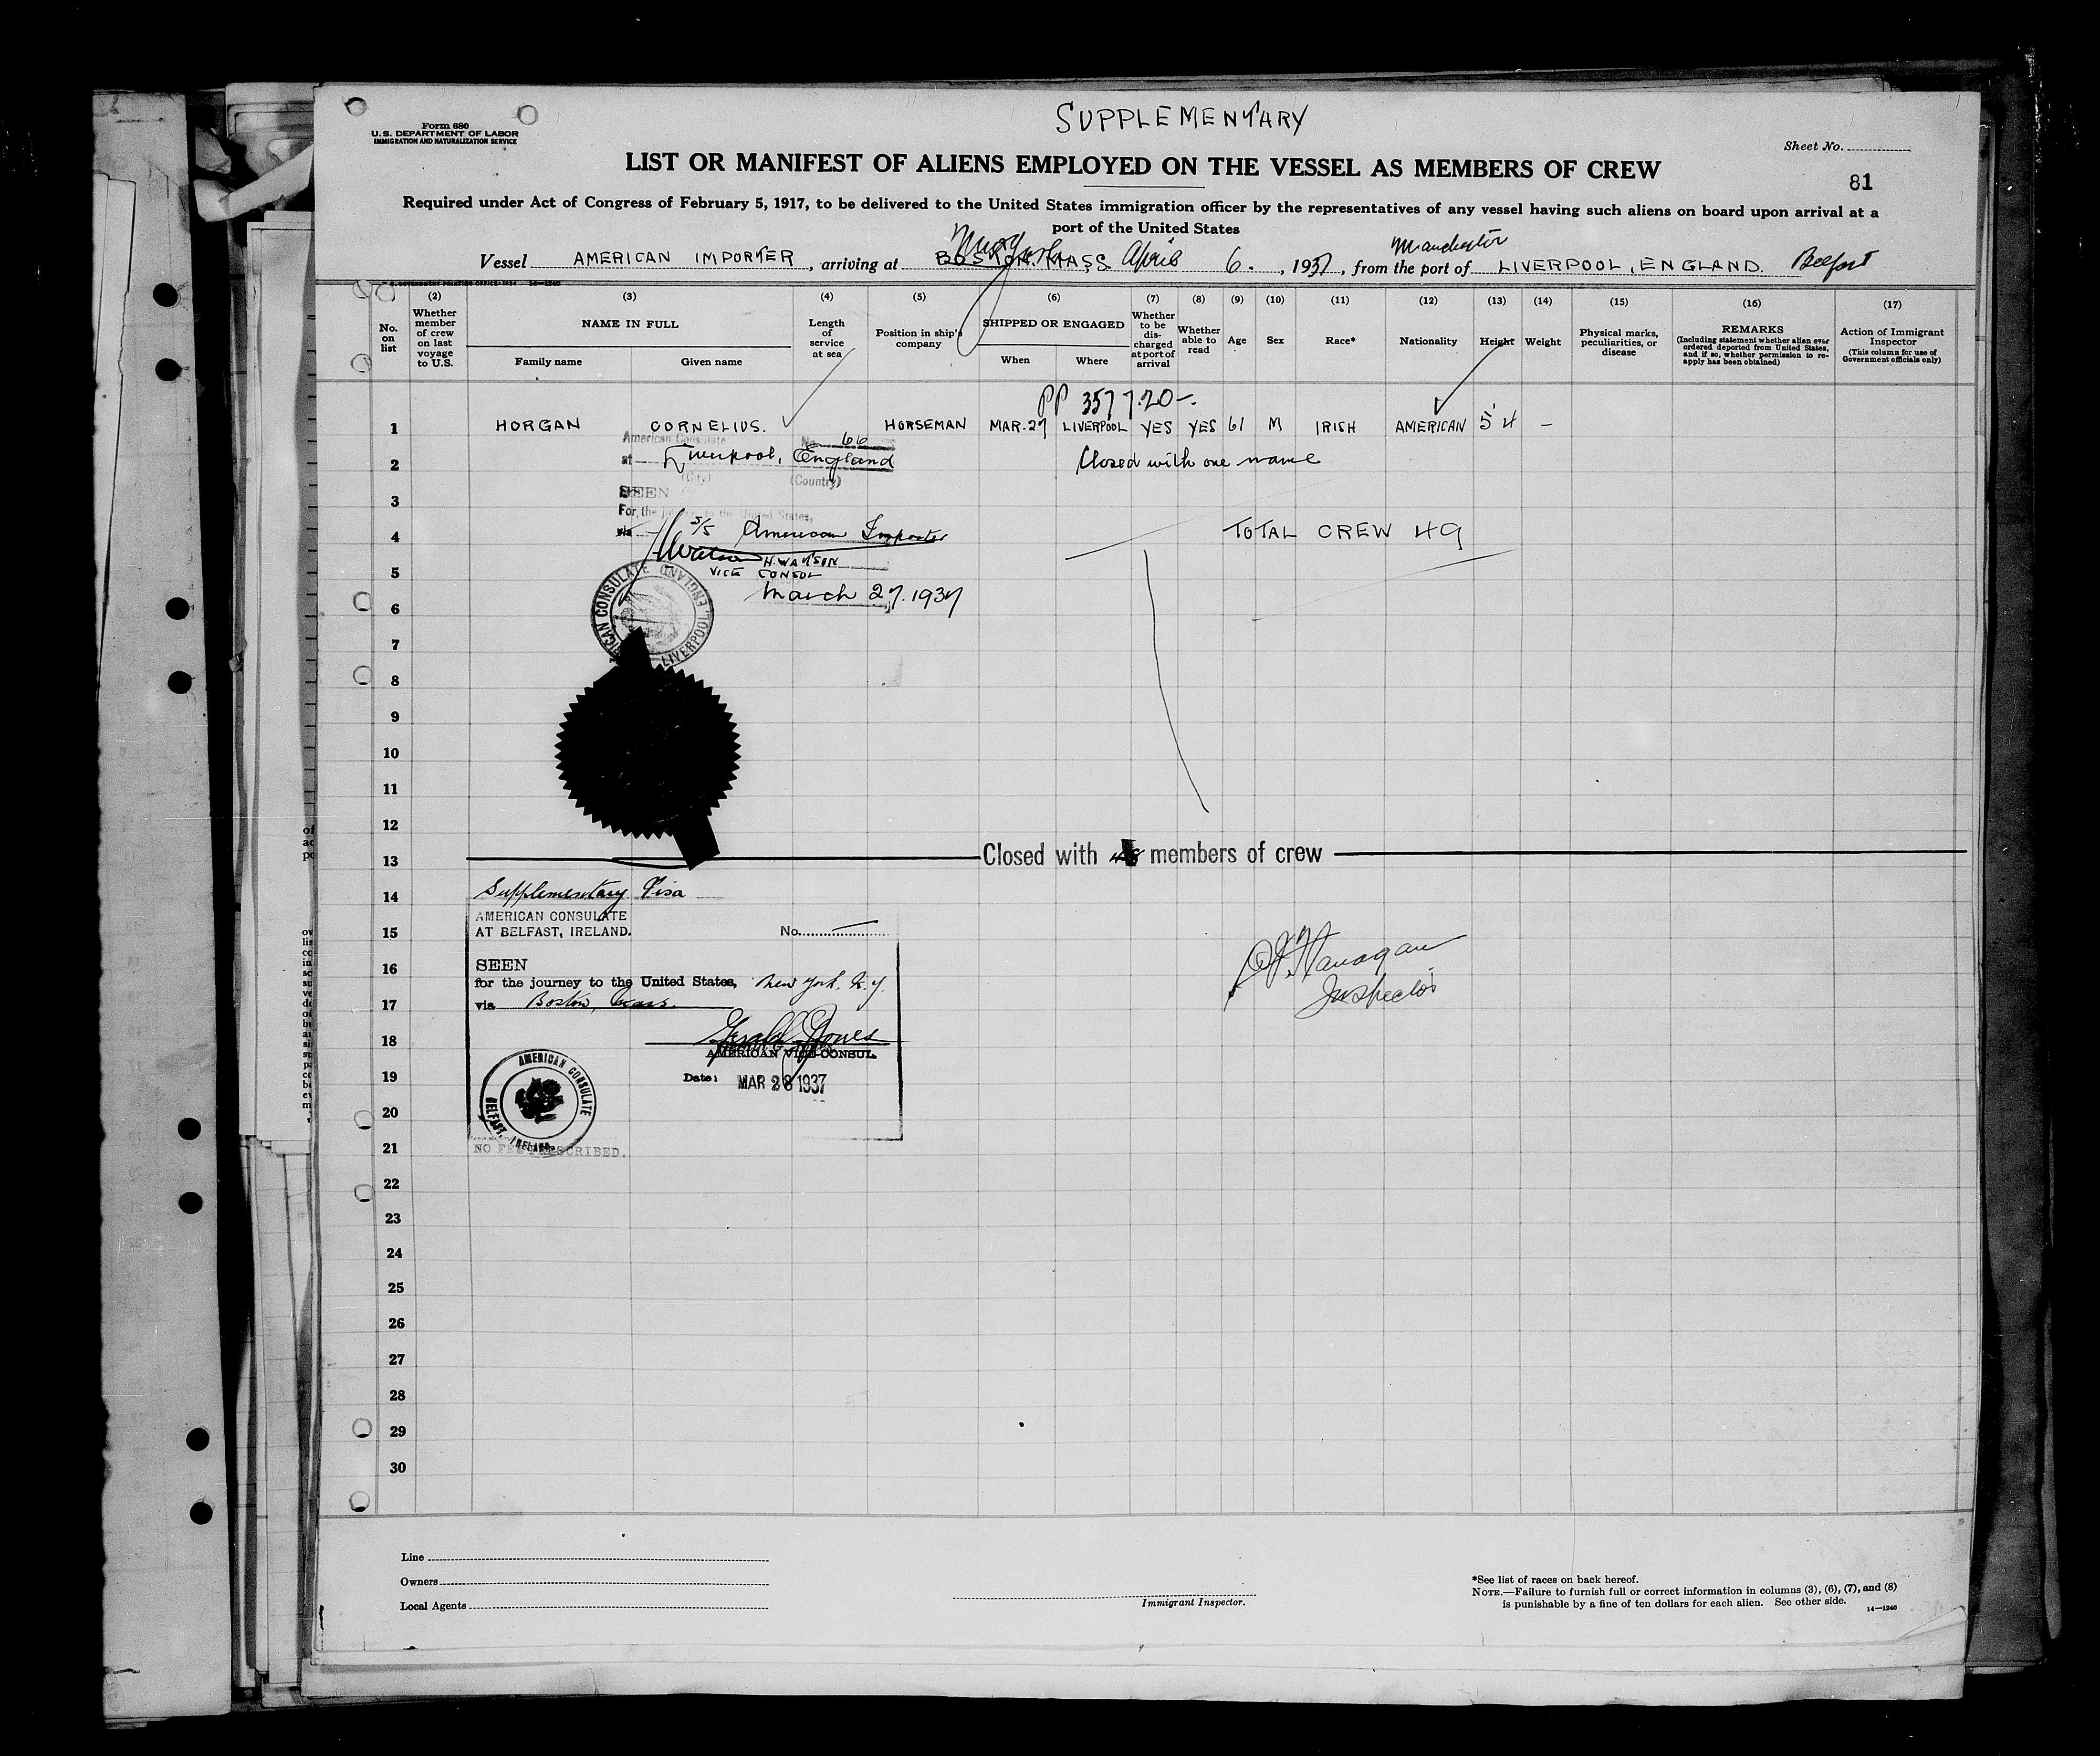 SUPPLEMENTARY
Form 680
U. S. DEPARTMENT OF LABOR
IMMIGRATION AND NATURALIZATION SERVICE
Sheet No.
LIST OR MANIFEST OF ALIENS EMPLOYED ON THE VESSEL AS MEMBERS OF CREW
81
Required under Act of Congress of February 5, 1917, to be delivered to the United States immigration officer by the representatives of any vessel having such aliens on board upon arrival at a
port of the United States
New York Manchester
Vessel AMERICAN IMPORTER, arriving at BOSTON, MASS April 6., 1937, from the port of LIVERPOOL, ENGLAND. Belfast
(2) (3) (4) (5) (6) (7) (8) (9) (10) (11) (12) (13) (14) (15) (16) (17)
No. on list
Whether member of crew on last voyage to U.S.
NAME IN FULL
Family name Given name
Length of service at sea
Position in ship's company
SHIPPED OR ENGAGED
When Where
Whether to be discharged at port of arrival
Whether able to read
Age
Sex
Race*
Nationality
Height
Weight
Physical marks, peculiarities, or disease
REMARKS
(Including statement whether alien ever ordered deported from United States, and if so, whether permission to re-apply has been obtained)
Action of Immigrant Inspector
(This column for use of Government officials only)
PP 357720-.
1 HORGAN CORNELIUS. HORSEMAN MAR-27 LIVERPOOL YES YES 61 M IRISH AMERICAN 5'4 -
American Consulate No. 66
2 at Liverpool, England Closed with one name
(City) (Country)
3 SEEN
For the journey to the United States,
4 via S/S American Importer TOTAL CREW 49
H. WATSON
5 VICE CONSOL
6 March 27. 1937
AMERICAN CONSULATE LIVERPOOL, ENGLAND
7
8
9
10
11
12
13 Closed with members of crew
14 Supplementary Visa
AMERICAN CONSULATE
15 AT BELFAST, IRELAND. No.
16 SEEN
for the journey to the United States, New York, N.Y.
17 via Boston, Mass.
O.J. Flanagan
Inspector
18 Gerald G Jones
AMERICAN VICE CONSUL.
19 Date: MAR 28 1937
20 AMERICAN CONSULATE BELFAST, IRELAND.
21 NO FEE PRESCRIBED.
22
23
24
25
26
27
28
29
30
Line
Owners
Local Agents
Immigrant Inspector.
*See list of races on back hereof.
NOTE.—Failure to furnish full or correct information in columns (3), (6), (7), and (8)
is punishable by a fine of ten dollars for each alien. See other side.
14—1240